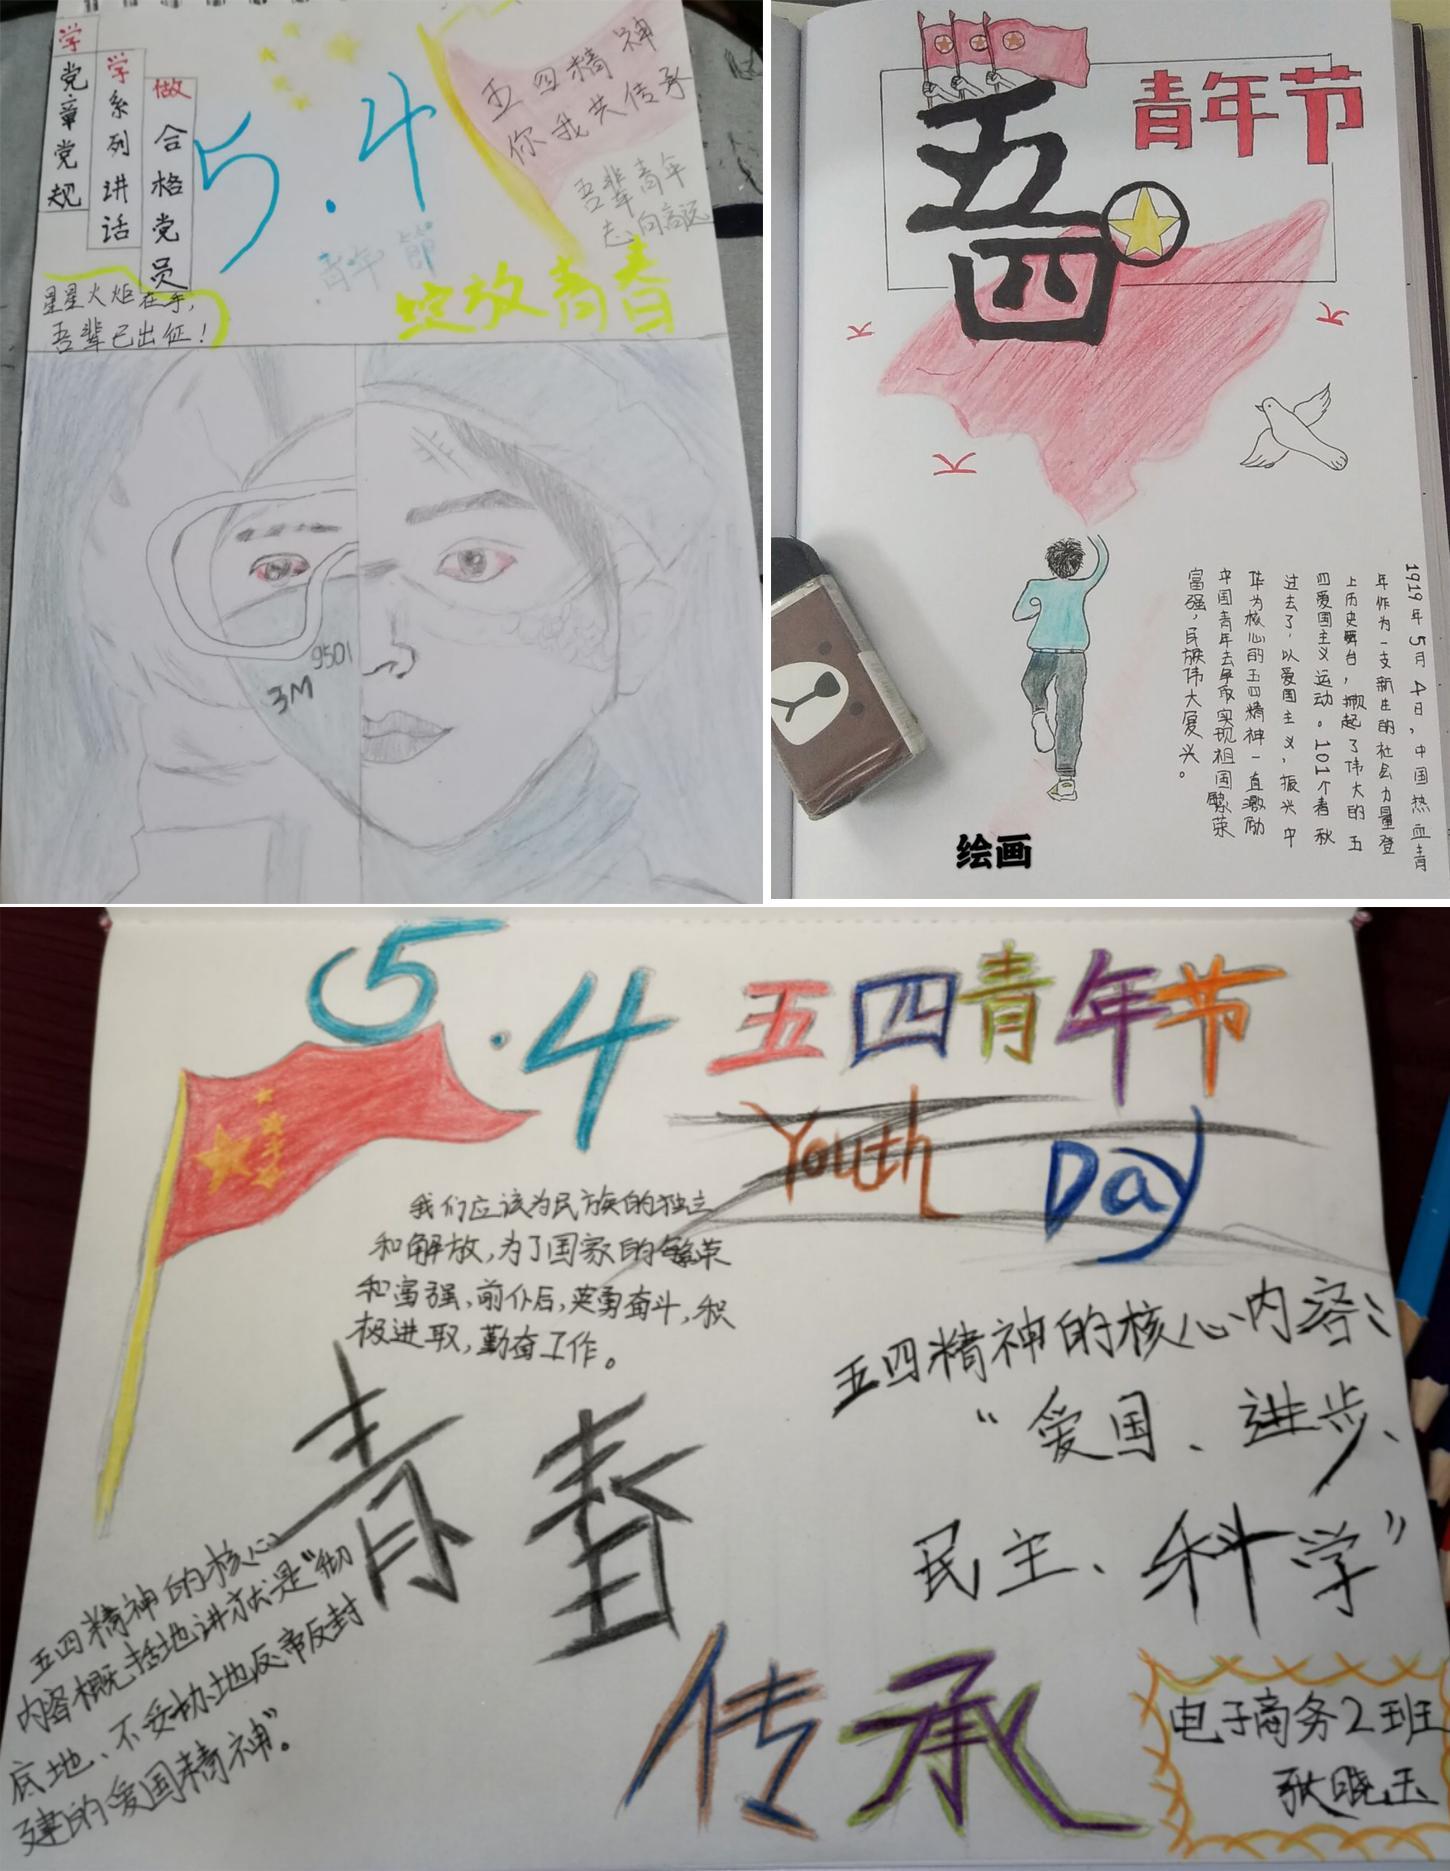 学党章党规
学系列讲话
做合格党员
5.4
青年節
五四精神
你我共传承
吾辈青年
志向高远
绽放青春
星星火炬在手,
吾辈已出征!
9501
3M
五四
青年节
1919年5月4日,中国热血青
年作为一支新生的社会力量登
上历史舞台,掀起了伟大的五
四爱国主义运动。101个春秋
过去了,以爱国主义,振兴中
华为核心的五四精神一直激励
中国青年去争取实现祖国繁荣
富强,民族伟大复兴。
绘画
5.4
五四青年节
Youth Day
我们应该为民族的独立
和解放,为了国家的繁荣
和富强,前仆后,英勇奋斗,积
极进取,勤奋工作。
五四精神的核心内容:
“爱国、进步、
民主、科学”
青春
传承
五四精神的核心
内容概括地讲就是“彻
底地、不妥协地反帝反封
建的爱国精神”。
电子商务2班
张晓玉